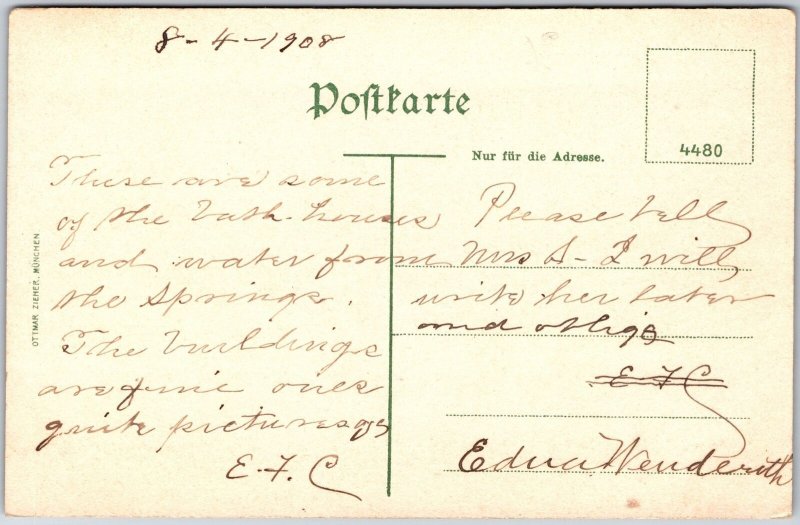 8-4-1908
Postkarte
4480
Nur für die Adresse.
OTTMAR ZIEHER, MÜNCHEN
These are some
of the bath-houses
and water from
the springs.
The buildings
are fine ones
quite picturesqs
E.F.C
Please tell
Mrs S- I will
write her later
and oblige
E F C
Edna Wenderoth